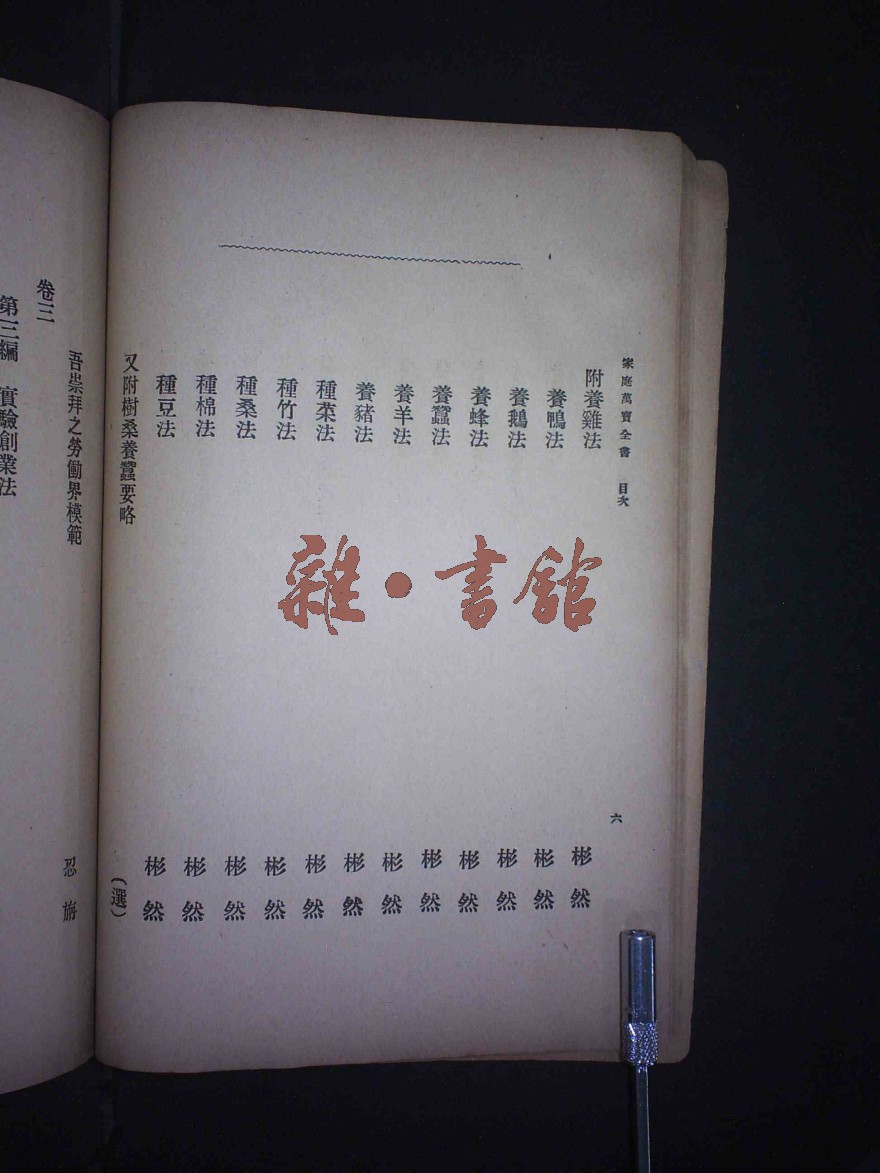 家庭萬寶全書 目次
六
附養雞法 彬然
養鴨法 彬然
養鵝法 彬然
養蜂法 彬然
養蠶法 彬然
養羊法 彬然
養豬法 彬然
種菜法 彬然
種竹法 彬然
種桑法 彬然
種棉法 彬然
種豆法 彬然
又附樹桑養蠶要略 (選)
吾崇拜之勞働界模範 忍
卷三
第三編 實驗創業法
雜·書館